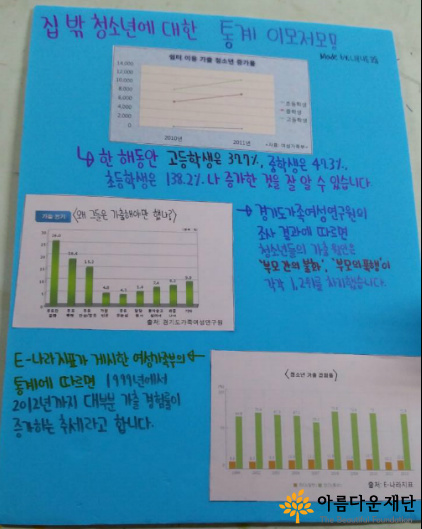 집 밖 청소년에 대한 통계 이모저모!!
쉼터 이용 가출 청소년 증가율
14,000
12,000
10,000
8,000
6,000
4,000
2,000
0
2010년
2011년
초등학생
중학생
고등학생
↳ 한 해동안 고등학생은 37.7%, 중학생은 49.3%,
초등학생은 138.2%나 증가한 것을 잘 알 수 있습니다.
가출 동기
<왜 그들은 가출해야만 했나?>
30
25
20
15
10
5
0
출처: 경기도가족여성연구원
→ 경기도가족여성연구원의
조사 결과에 따르면
청소년들의 가출 원인은
'부모 간의 불화', '부모의 폭행'이
각각 1, 2위를 차지했습니다.
E-나라지표가 게시한 여성가족부의
통계에 따르면 1999년에서
2012년까지 대부분 가출 경험률이
증가하는 추세라고 합니다.
<청소년 가출 경험률>
출처: E-나라지표
아름다운재단